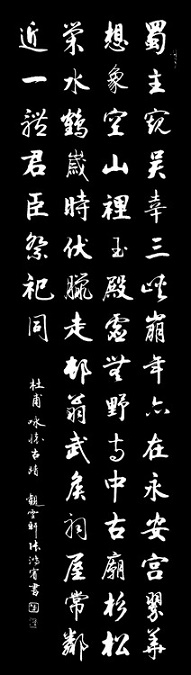 蜀主窥吴幸三峡崩年亦在永安宫翠華
想象空山裡玉殿虚無野寺中古廟杉松
巢水鶴歲時伏臘走邨翁武侯祠屋常鄰
近一體君臣祭祀同
杜甫咏怀古蹟 觀雲軒 鴻賓書